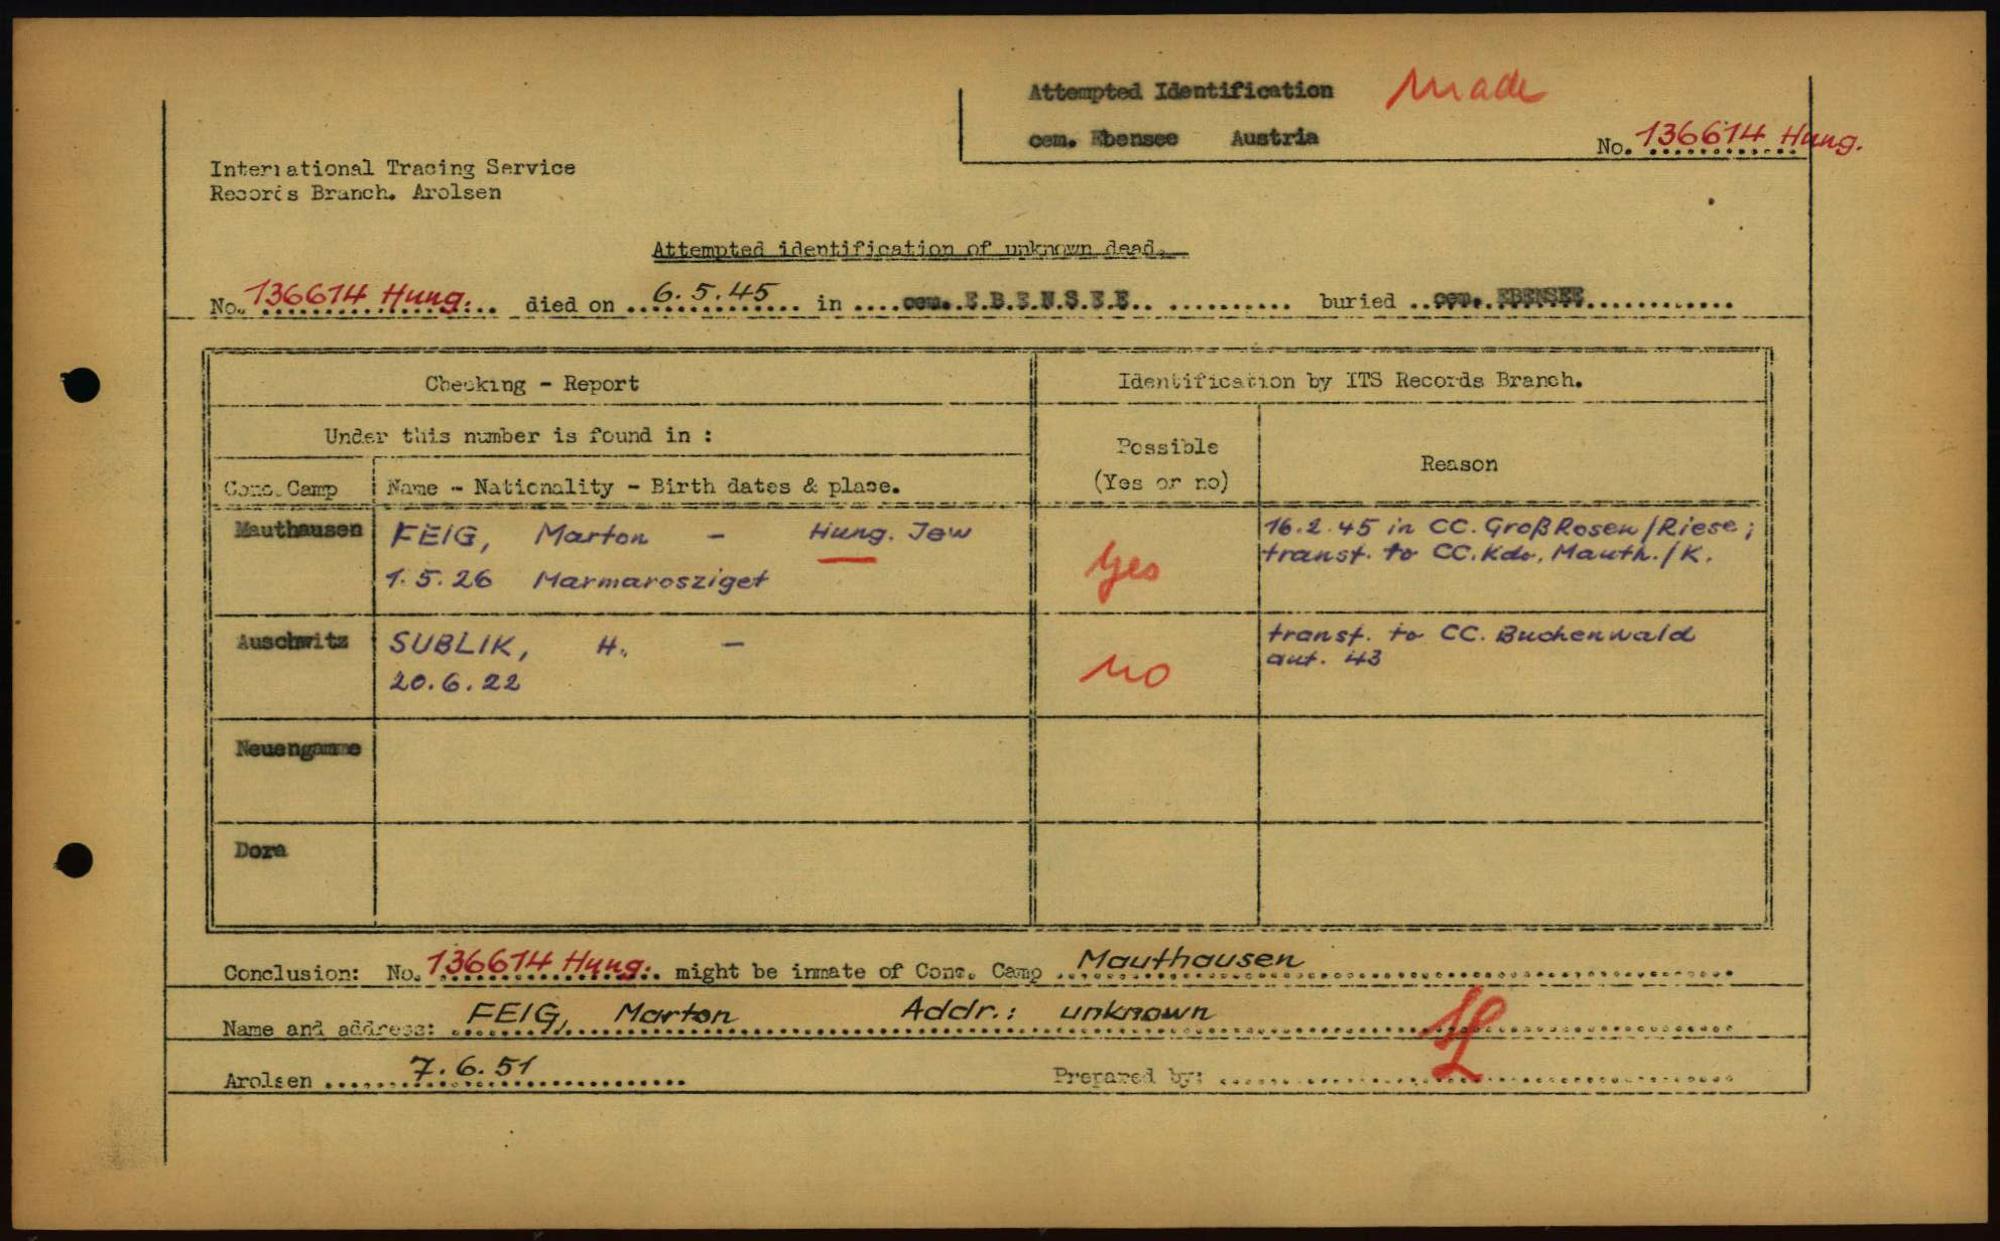 Attempted Identification Made
cem. Ebensee Austria
No. 136614 Hung.
International Tracing Service
Records Branch. Arolsen
Attempted identification of unknown dead.
No. 136614 Hung. died on 6.5.45 in cem. E.B.E.N.S.E.E. buried cem. EBENSEE
Checking - Report
Identification by ITS Records Branch.
Under this number is found in :
Possible
(Yes or no)
Reason
Conc. Camp Name - Nationality - Birth dates & place.
Mauthausen FEIG, Marton - Hung. Jew
1.5.26 Marmarosziget
Yes
16.2.45 in CC. GroßRosen/Riese;
transf. to CC. Kdo. Mauth./K.
Auschwitz SUBLIK, H. -
20.6.22
no
transf. to CC. Buchenwald
aut. 43
Neuengamme
Dora
Conclusion: No. 136614 Hung. might be inmate of Conc. Camp Mauthausen
Name and address: FEIG, Marton Addr.: unknown
Arolsen 7.6.51 Prepared by: